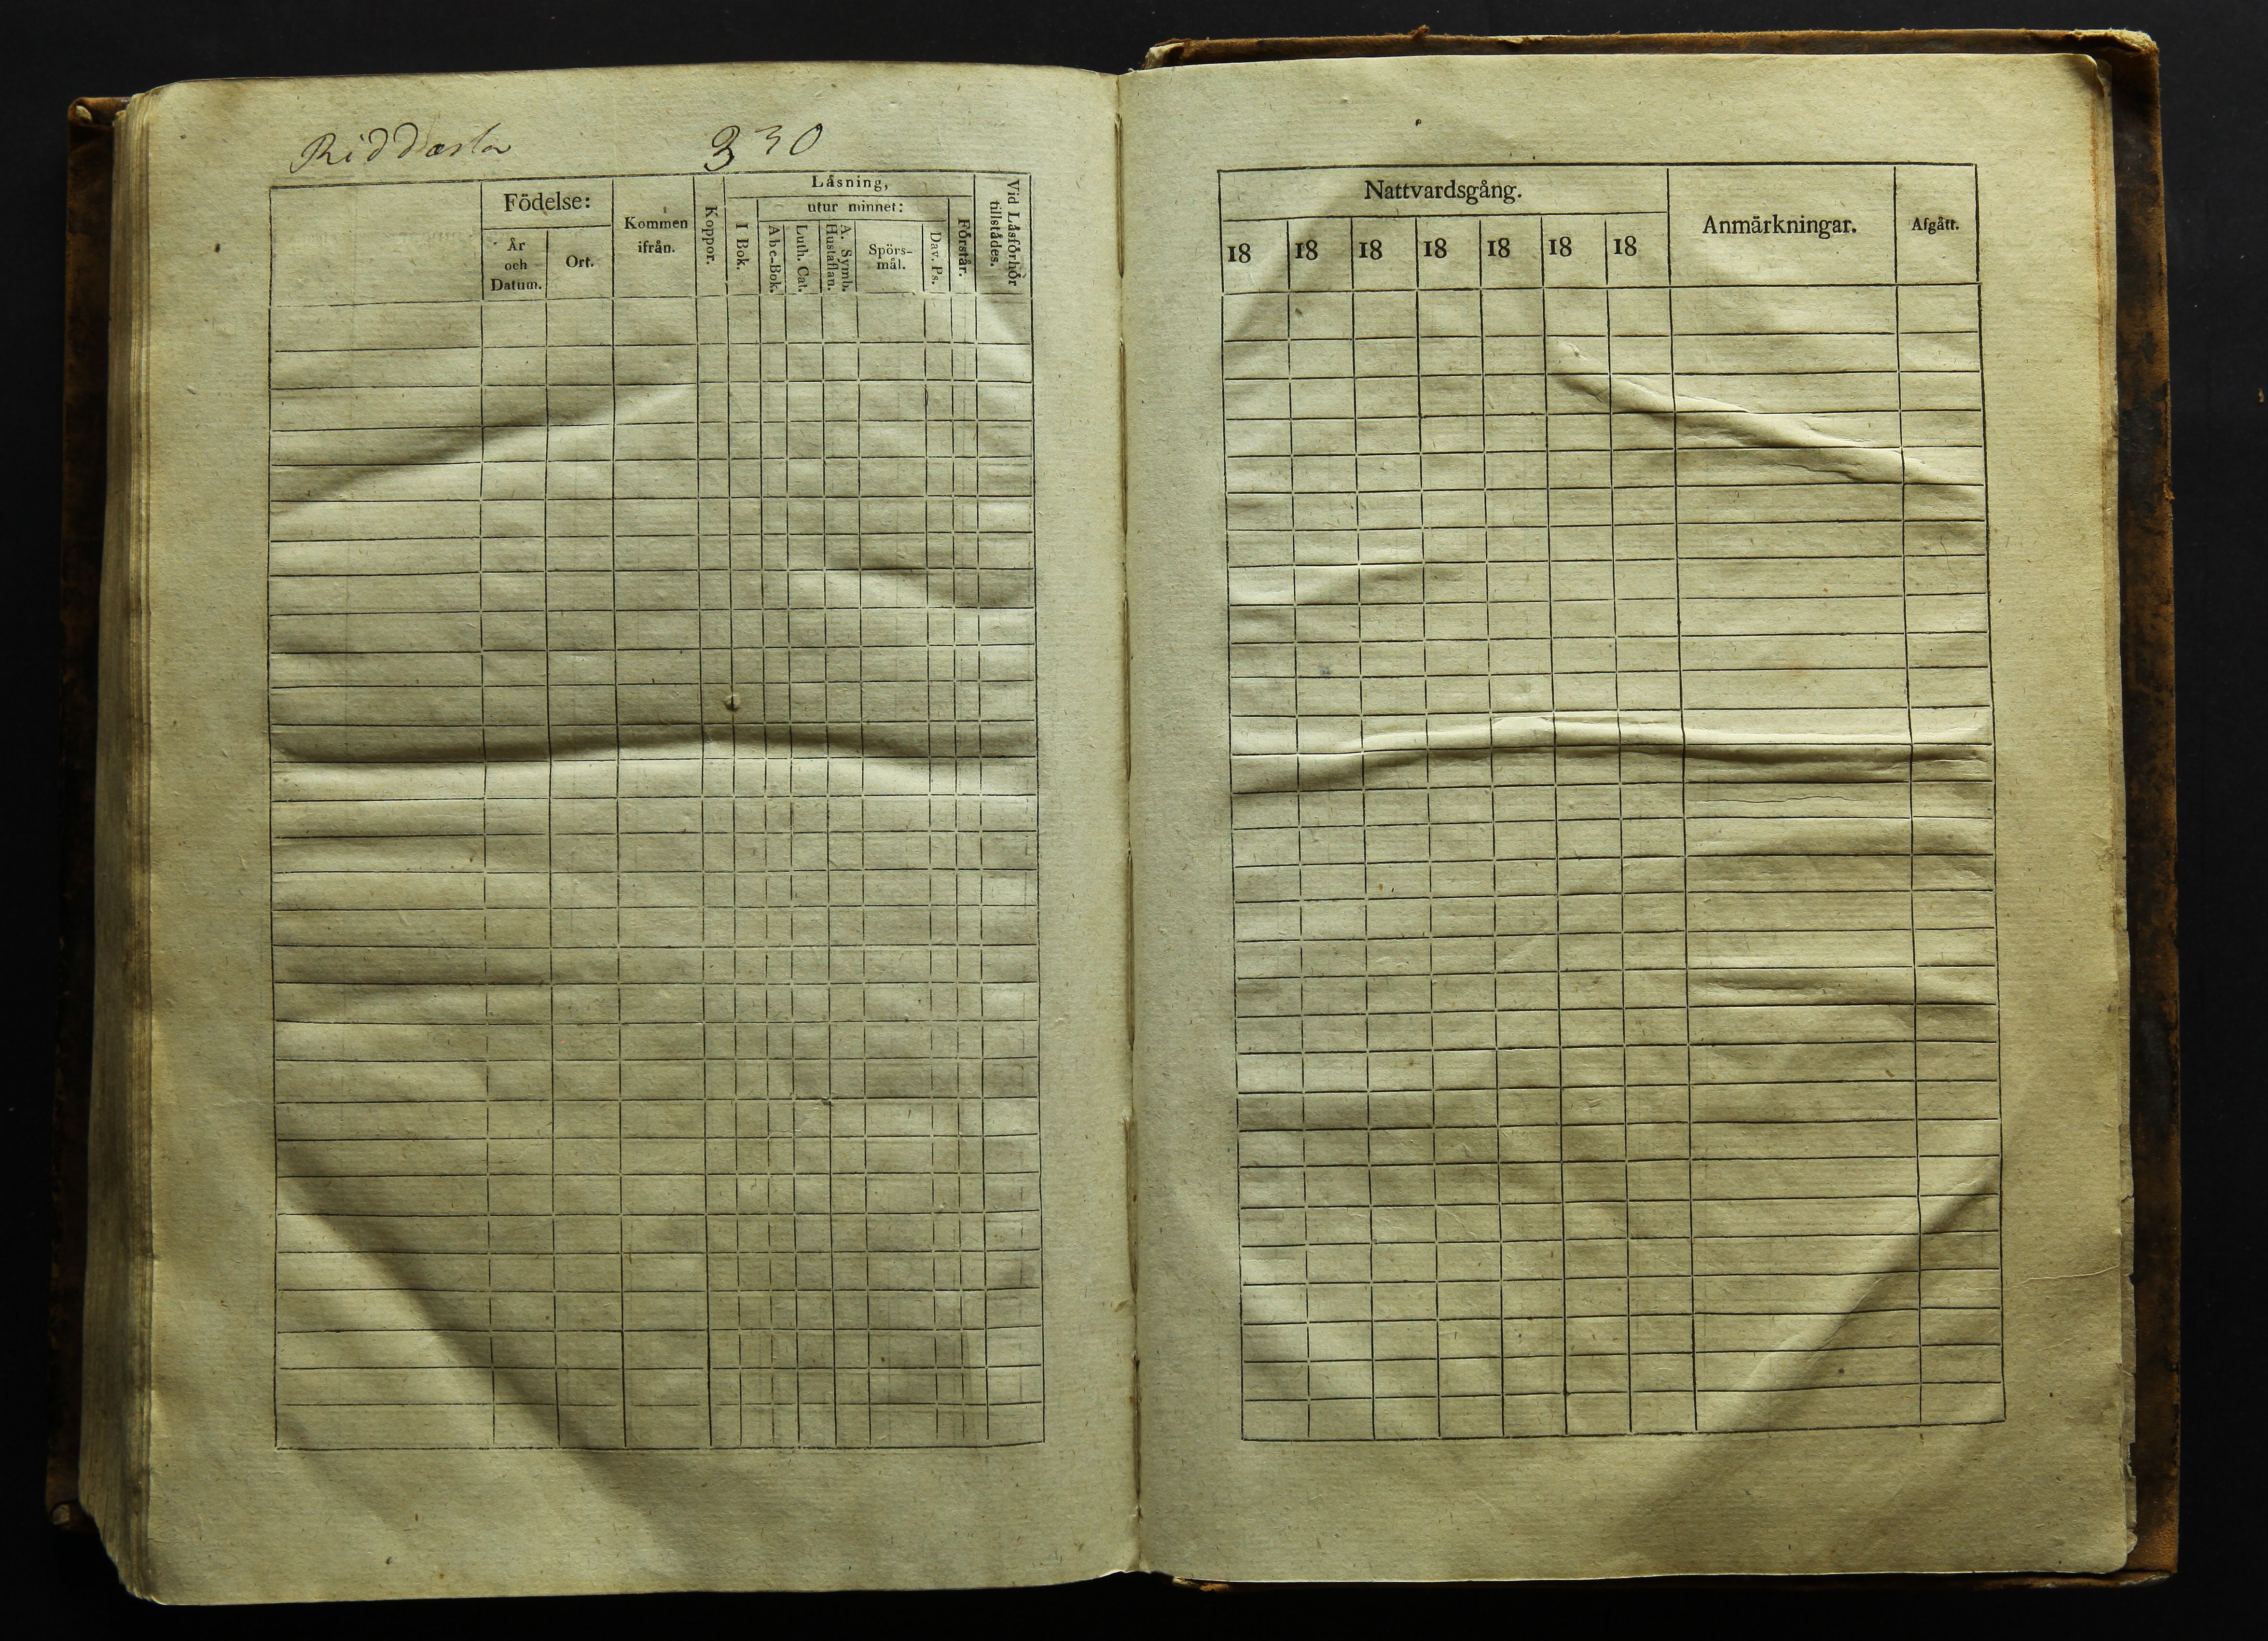 Riddarsta 330
Födelse:
År
och
Datum.
Ort.
Kommen
ifrån.
Koppor.
Låsning,
I Bok.
utur minnet:
Abc-Bok.
Luth. Cat.
A. Symb.
Hustaflan.
Spörs-
mål.
Dav. Ps.
Förstår.
Vid Låsförhör
tillstådes.
Nattvardsgång.
18 18 18 18 18 18 18
Anmärkningar.
Afgått.